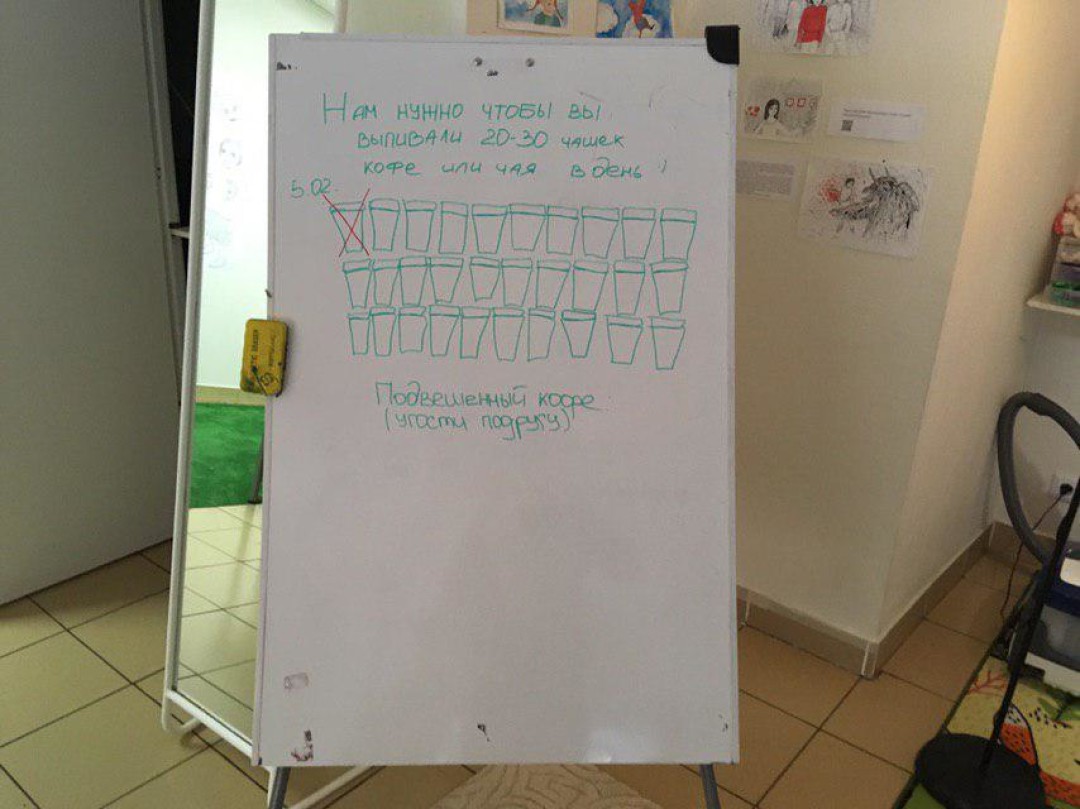 Нам нужно чтобы вы
выпивали 20-30 чашек
кофе или чая в день!
5.02.
Подвешенный кофе
(угости подругу)